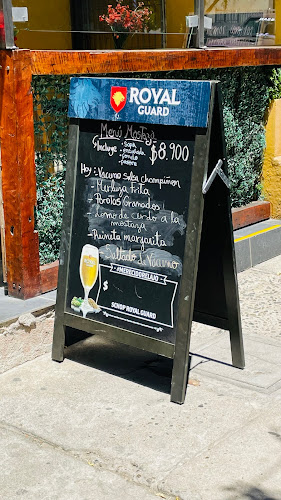 ROYAL
GUARD
ROYAL
Menú Mostaza
Incluye
- Sopa
- ensalada
- fondo
- postre
$8.900
Hoy: Vacuno salsa champiñon
- Merluza frita
- Porotos Granados
- Lomo de cerdo a la
mostaza
- Reineta margarita
- Salteado de Vacuno
#MERECIDORELAJO
$
SCHOP ROYAL GUARD